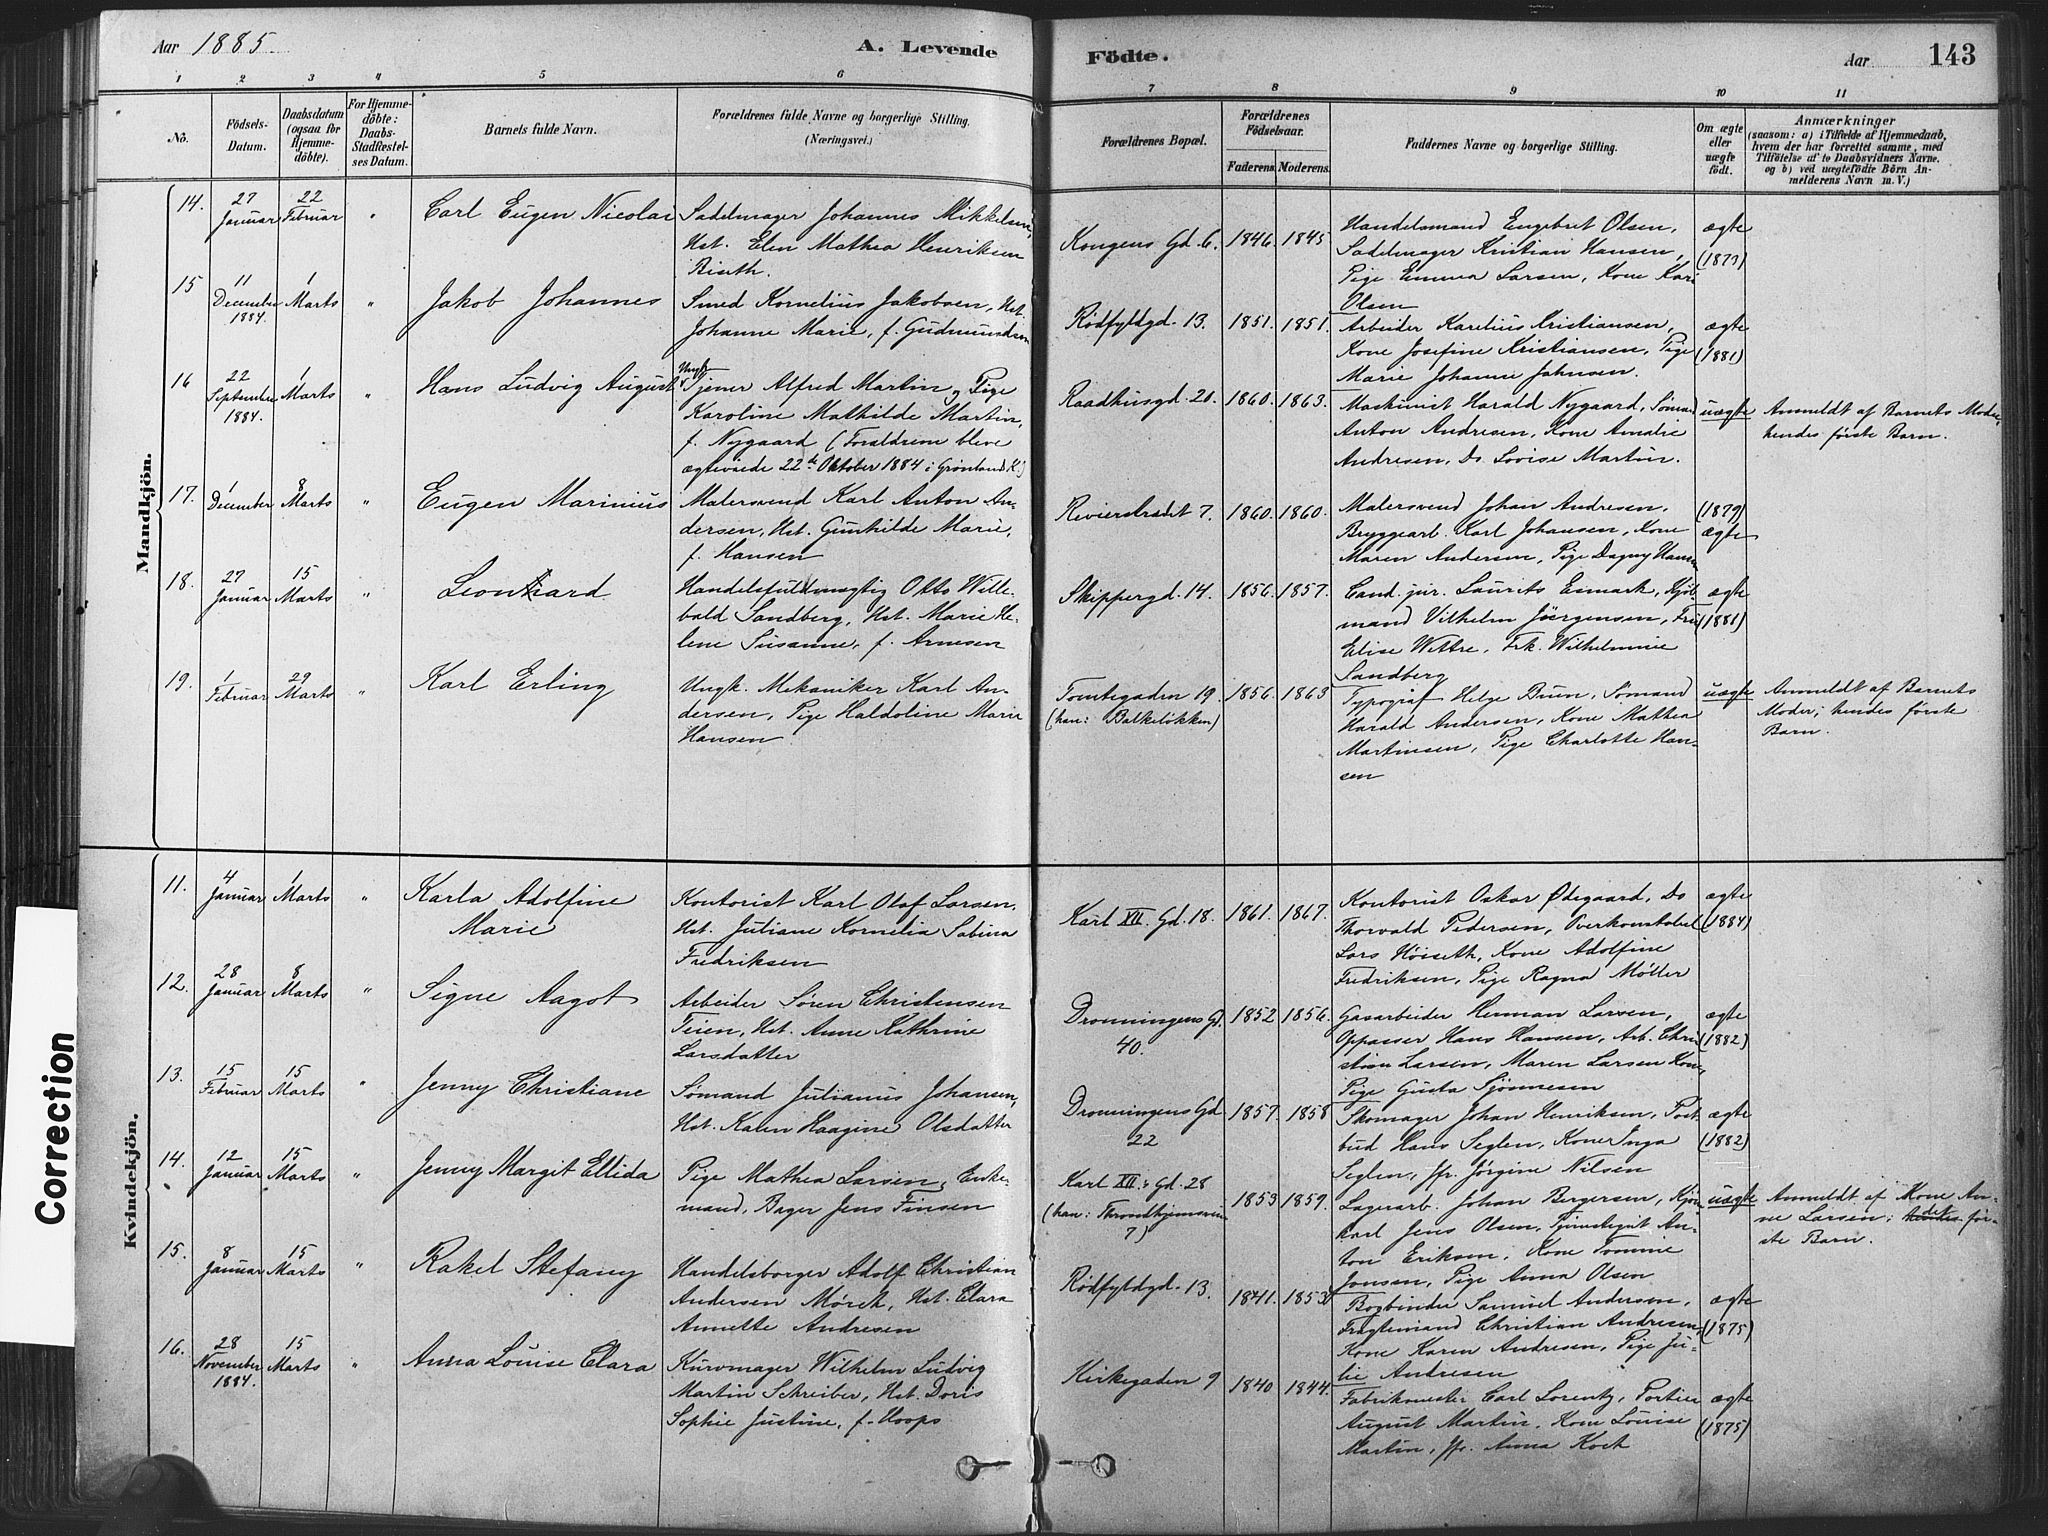 Aar 1885. A. Levende Födte. Aar 143
1 2 3 4 5 6 7 8 9 10 11
No. Födsels-Datum. Daabsdatum (ogsaa for Hjemmedöbte). For Hjemmedöbte: Daabs-Stadfæstelses Datum. Barnets fulde Navn. Forældrenes fulde Navne og borgerlige Stilling. (Næringsvei.) Forældrenes Bopæl. Forældrenes Födselsaar. Faderens. Moderens. Faddernes Navne og borgerlige Stilling. Om ægte eller uægte födt. Anmærkninger (saasom: a) i Tilfælde af Hjemmedaab, hvem der har forrettet samme, med Tilföielse af to Daabsvidners Navne. og b) ved uægtefödte Börn Anmelderens Navn m. V.)
Mandkjön.
14. 27 Januar 22 Februar " Carl Eugen Nicolai
Sadelmager Johannes Mikkelsen,
Hst. Elen Mathea Henriksen
Biseth.
Kongens Gd. 6. 1846. 1845
Handelsmand Engebret Olsen,
Sadelmager Kristian Hansen,
Pige Emma Larsen, Kone Kari
Olsen
ægte
(1873)
15 11 December 1884. 1 Marts " Jakob Johannes
Smed Kornelius Jakobsen, Hst.
Johanne Marie, f. Gudmundsen
Rödfyldgd. 13. 1851. 1851.
Arbeider Karelius Cristiansen,
Kone Josefine Kristiansen, Pige
Marie Johanne Johnsen.
ægte
(1881)
16 22 September 1884. 1 Marts " Hans Ludvig August
Ungk. Tjener Alfred Martin og Pige
Karoline Mathilde Martin,
f. Nygaard (Forældrene bleve
ægteviede 22de Oktober 1884 i Grønlands K.)
Raadhusgd. 20. 1860. 1863.
Maskinist Harald Nygaard, Sömand
Anton Andresen, Kone Amalie
Andresen, Do Lovise Martin.
uægte
Anmeldt af Barnets Moder,
hendes første Barn.
17. 1 December 8 Marts " Eugen Marinius
Malersvend Karl Anton An-
dersen, Hst. Gunhilde Marie,
f. Hansen
Revierstrædet 7. 1860. 1860.
Malersvend Johan Andresen,
Bryggearb. Karl Johansen, Kone
Maren Andersen, Pige Dagny Hansen
(1879)
ægte
18. 27 Januar 15 Marts " Leonhard
Handelsfuldmægtig Otto Wille-
bald Sandberg, Hst. Marie He-
lene Susanne, f. Arnesen
Skippergd. 14. 1856. 1857.
Cand. jur. Laurits Esmark, Kjöb-
mand Vilhelm Jörgensen, Fru
Elise Wettre, Frk. Wilhelmine
Sandberg
ægte
(1881)
19. 1 Februar 29 Marts " Karl Erling
Ungk. Mekaniker Karl An-
dersen, Pige Haldoline Marie
Hansen
Tomtegaden 19.
(han: Balkeløkken)
1856. 1863
Typograf Helge Bruun, Sömand
Harald Andersen, Kone Mathea
Martinsen, Pige Charlotte Han-
sen
uægte
Anmeldt af Barnets
Moder; hendes første
Barn.
Kvindekjön.
11. 4 Januar 1 Marts " Karla Adolfine
Marie
Kontorist Karl Olaf Larsen,
Hst. Juliane Kornelia Sabina
Fredriksen
Karl XII. Gd. 18. 1861. 1867.
Kontorist Oskar Ødegaard, Do
Thorvald Pedersen, Overkonstabel
Lars Höiseth, Kone Adolfine
Fredriksen, Pige Ragna Möller
ægte
(1884)
12. 28 Januar 8 Marts " Signe Aagot
Arbeider Sören Christensen
Teien, Hst. Anne Kathrine
Larsdatter
Dronningens Gd.
40.
1852 1856.
Gasarbeider Herman Larsen,
Oppasser Hans Hansen, Arb. Chri-
stian Larsen, Maren Larsen Kone,
Pige Gusta Sjönnesen
ægte
(1882)
13. 15 Februar 15 Marts " Jenny Christiane
Sömand Julianus Johansen,
Hst. Karen Haagine Olsdatter
Dronningens Gd
22
1857. 1858
Skomager Johan Henriksen, Post-
bud Hans Seglen, Kone Inga
Seglen, Jfr. Jörgine Nilsen
ægte
(1882)
14. 12 Januar 15 Marts " Jenny Margit Ellida
Pige Mathea Larsen, Enke-
mand, Bager Jens Finsen
Karl XII.s Gd. 28
(han: Throndhjemsveien
7)
1853 1859.
Lagerarb. Johan Bergersen, Kjöre-
karl Jens Olsen, Tjenestegut An-
ton Eriksen, Kone Tomine
Jonsen, Pige Anna Olsen
uægte
Anmeldt af Kone An-
ne Larsen; det för-
ste Barn.
15. 8 Januar 15 Marts " Rakel Stefany
Handelsborger Adolf Christian
Andersen Mörck, Hst. Clara
Annette Andresen
Rödfyldgd. 13. 1841. 1853
Bogbinder Samuel Andersen,
Fragtemand Christian Andresen,
Kone Karen Andresen, Pige Ju-
lie Andresen
ægte
(1875)
16. 28 November 1884. 15 Marts " Anna Louise Clara
Kurvmager Wilhelm Ludvig
Martin Schreiber, Hst. Doris
Sophie Justine, f. Hoops
Kirkegaden 9 1840 1844.
Fabrikmester Carl Lorentz, Portier
August Martin, Kone Louise
Martin, Jfr. Anna Kock
ægte
(1875)
Correction